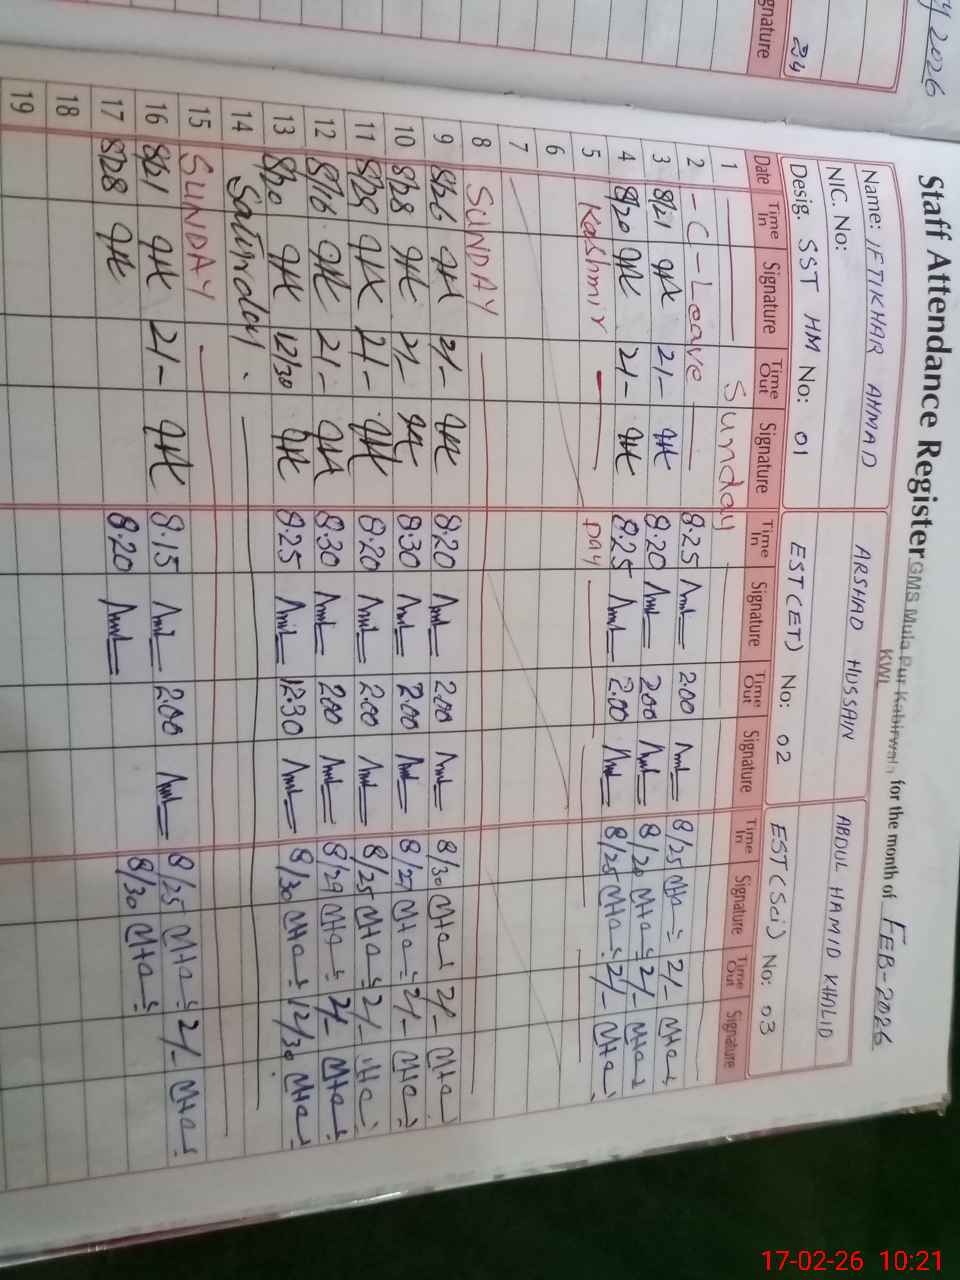 y 2026
34
gnature
Staff Attendance Register GMS Mula Pur Kabirwala for the month of FEB-2026
KWL
Name: IFTIKHAR AHMAD ARSHAD HUSSAIN ABDUL HAMID KHALID
NIC. No:
Desig. SST HM No: 01 EST(ET) No: 02 EST(Sci) No: 03
Date Time In Signature Time Out Signature Time In Signature Time Out Signature Time In Signature Time Out Signature
1 Sunday
2 - C - Leave 8.25 2.00 8/25 2/-
3 8/21 2/- 8.20 2.00 8/20 2/-
4 8/20 2/- 8.25 2.00 8/25 2/-
5 Kashmir Day
6
7
8 SUNDAY
9 8/26 2/- 8.20 2.00 8/30 2/-
10 8/28 2/- 8.30 2.00 8/27 2/-
11 8/28 2/- 8.20 2.00 8/25 2/-
12 8/16 2/- 8.30 2.00 8/29 2/-
13 8/20 12/30 8.25 12.30 8/30 12/30
14 Saturday.
15 SUNDAY
16 8/21 2/- 8.15 2.00 8/25 2/-
17 8/28 8.20 8/30
18
19
17-02-26 10:21